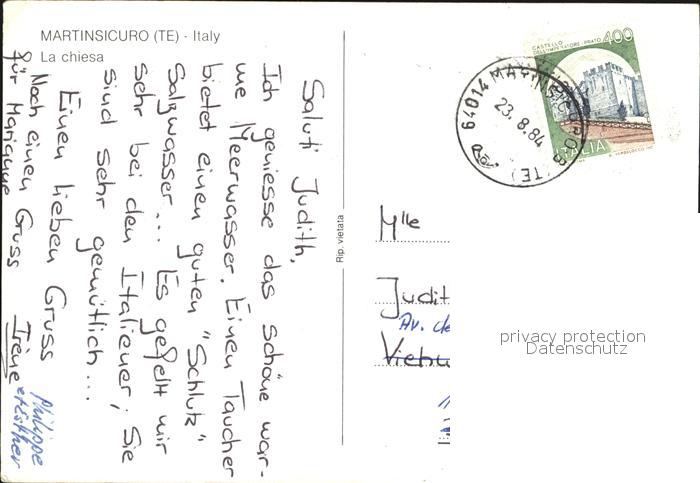 MARTINSICURO (TE) - Italy
La chiesa
Saluti Judith,
Ich geniesse das schöne war-
me Meerwasser. Einen Taucher
bietet einen guten "Schlutz"
Salzwasser... Es gefelt mir
sehr bei den Italiener; Sie
sind sehr gemütlich...
Einen lieben Gruss
Irène
Noch einen Gruss
für Marianne
Philippe
et Esther
Rip. vietata
CASTELLO
DELL'IMPERATORE - PRATO
400
ITALIA
64014 MARTINSICURO
23.8.84
(TE)
Mlle
Judit
Av. de
privacy protection
Datenschutz